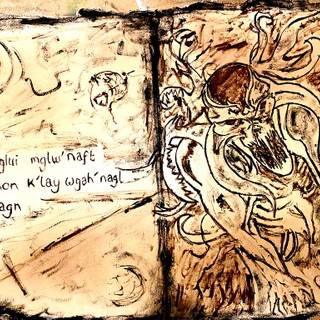 glui mglw'naft
on k'lay wgah'nagl
agn